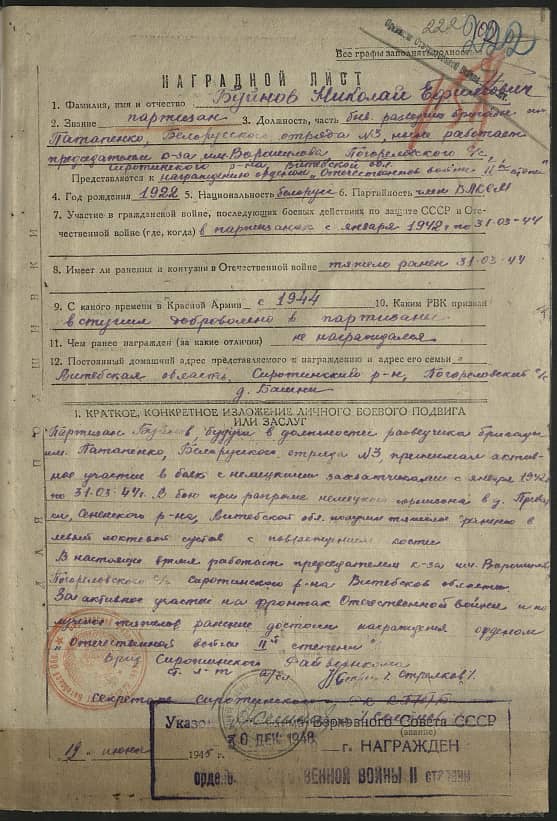 222
222
Все графы заполнять полностью
НАГРАДНОЙ ЛИСТ
1. Фамилия, имя и отчество Буйнов Николай Ефимович
2. Звание партизан 3. Должность, часть быв. разведчик бригады им.
Патапенко, Белорусского отряда №3, ныне работает
председателем к-за им. Ворошилова Погореловского с/с,
Сиротинского р-на, Витебской обл.
Представляется к награждению орденом „Отечественной войны II й степени"
4. Год рождения 1922 5. Национальность белорус 6. Партийность член ВЛКСМ
7. Участие в гражданской войне, последующих боевых действиях по защите СССР и Оте-
чественной войне (где, когда) в партизанах с января 1942 г по 31-03-44
8. Имеет ли ранения и контузии в Отечественной войне тяжело ранен 31-03-44
9. С какого времени в Красной Армии с 1944 10. Каким РВК призван
вступил доброволено в партизаны
11. Чем ранее награжден (за какие отличия) не награждался
12. Постоянный домашний адрес представляемого к награждению и адрес его семьи
Витебская область, Сиротинский р-н, Погореловский с/с
д. Башни
ДЛЯ ПОДШИВКИ
I. КРАТКОЕ, КОНКРЕТНОЕ ИЗЛОЖЕНИЕ ЛИЧНОГО БОЕВОГО ПОДВИГА
ИЛИ ЗАСЛУГ
Партизан Буйнов, будучи в должности разведчика бригады
им. Патапенко, Белорусского отряда №3, принимал актив-
ное участие в боях с немецкими захватчиками с января 1942
по 31-03-44 г. В бою при разгроме немецкого гарнизона в д.
Сененского р-на, Витебской обл. получил тяжелое ранение в
левый локтевой сустав с повреждением кости
В настоящее время работает председателем к-за им. Ворошилова
Погореловского с/с Сиротинского р-на Витебской области.
За активное участие на фронтах Отечественной войны и по-
лучение тяжелое ранение достоин награждения орденом
„Отечественной войны II й степени"
Сиротинского Райвоенкома
Стрелков
Секретарь Сиротинского РК КП(б)Б
19 июня 1945 г.
Указом Верховного Совета СССР
(звание)
30 ДЕК 1948 г. НАГРАЖДЕН
ОТЕЧЕСТВЕННОЙ ВОЙНЫ II степени